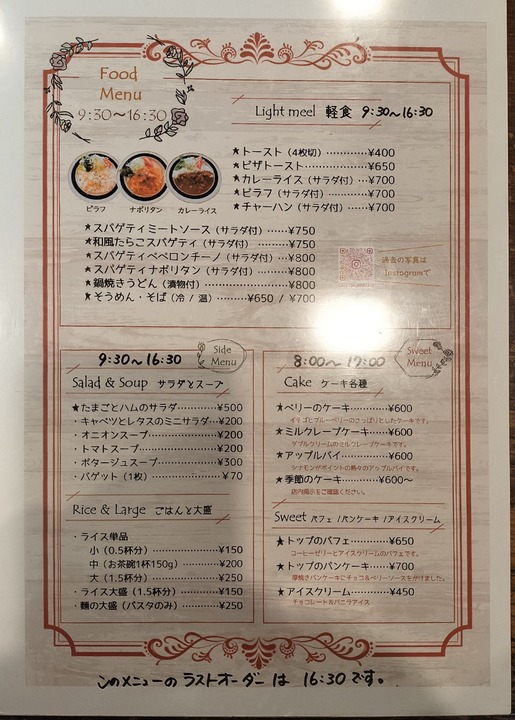 Food
Menu
9:30～16:30
Light meel 軽食 9:30～16:30
★トースト（4枚切）…………¥400
★ピザトースト………………¥650
★カレーライス（サラダ付）…¥700
★ピラフ（サラダ付）…………¥700
★チャーハン（サラダ付）……¥700
ピラフ ナポリタン カレーライス
★スパゲティミートソース（サラダ付）…¥750
★和風たらこスパゲティ（サラダ付）…¥750
★スパゲティペペロンチーノ（サラダ付）…¥800
★スパゲティナポリタン（サラダ付）……¥800
★鍋焼きうどん（漬物付）………………¥800
★そうめん・そば（冷 / 温）………¥650 / ¥700
過去の写真は
Instagramで
9:30～16:30
Side
Menu
Salad & Soup サラダとスープ
★たまごとハムのサラダ………¥500
・キャベツとレタスのミニサラダ…¥200
・オニオンスープ………………¥200
・トマトスープ…………………¥200
・ポタージュスープ……………¥300
・バゲット（1枚）………………¥70
Rice & Large ごはんと大盛
・ライス単品
小（0.5杯分）………………¥150
中（お茶碗1杯150g）………¥200
大（1.5杯分）………………¥250
・ライス大盛（1.5杯分）………¥150
・麺の大盛（パスタのみ）………¥250
8:00～17:00
Sweet
Menu
Cake ケーキ各種
★ベリーのケーキ…………¥600
イチゴとブルーベリーのさっぱりとしたケーキです。
★ミルクレープケーキ……¥600
ダブルクリームのミルクレープケーキです。
★アップルパイ……………¥600
シナモンがポイントの熱々のアップルパイです。
★季節のケーキ……………¥600～
店内掲示をご確認ください。
Sweet パフェ /パンケーキ /アイスクリーム
★トップのパフェ…………¥650
コーヒーゼリーとアイスクリームのパフェです。
★トップのパンケーキ……¥700
厚焼きパンケーキにチョコ＆ベリーソースをかけました。
★アイスクリーム…………¥450
チョコレート＆バニラアイス
このメニューのラストオーダーは 16:30です。